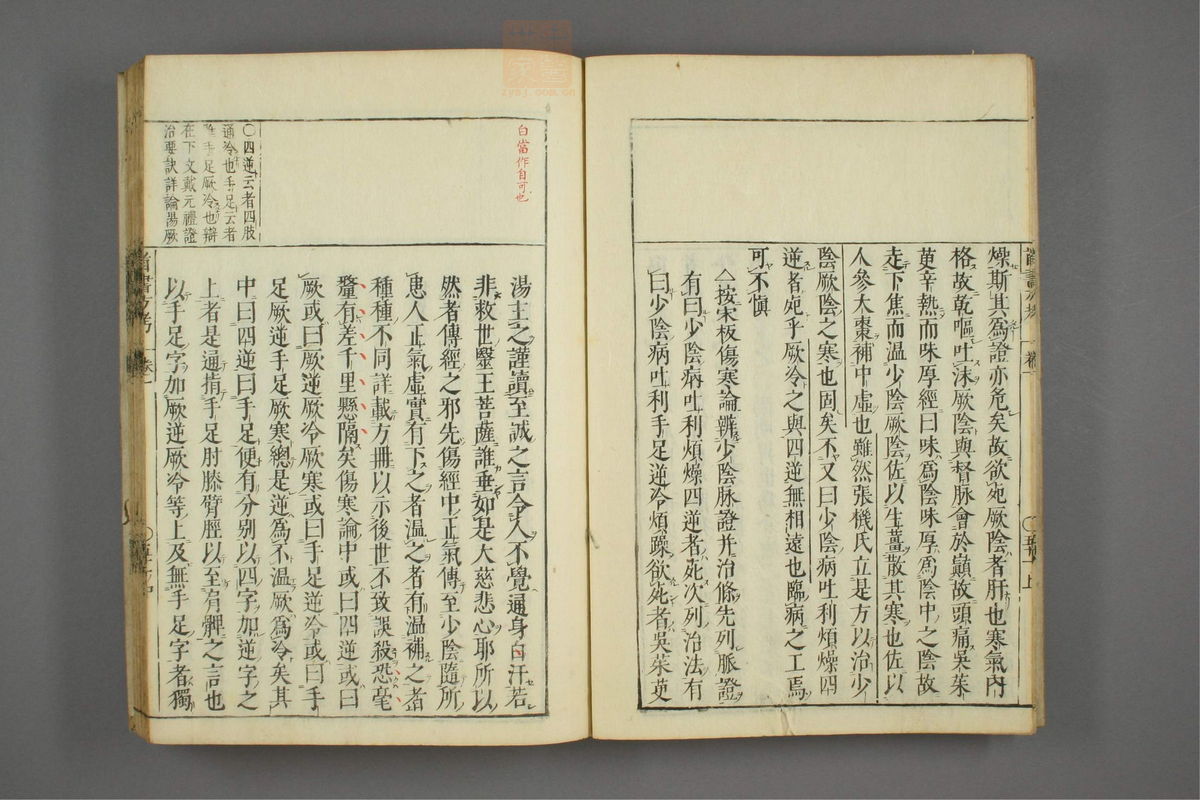 燥斯其爲證亦危矣故欲宛厥陰者肝也寒氣内
格故乾嘔吐沫厥陰與督脉會於巓故頭痛吳茱
萸辛熱而味厚經曰味爲陰味厚爲陰中之陰故
走下焦而温少陰厥陰佐以生薑散其寒也佐以
人參大棗補中虛也雖然張機氏立是方以治少
陰厥陰之寒也固矣不又曰少陰病吐利煩燥四
逆者宛乎厥冷之與四逆無相遠也臨病之工焉
可不愼
△按宋板傷寒論辨少陰脉證并治條先列脈證
有曰少陰病吐利煩燥四逆者死次列治法有
曰少陰病吐利手足逆冷煩躁欲死者吳茱萸
白當作自可也
湯主之謹讀至誠之言令人不覺通身白汗若
非救世毉王菩薩誰垂如是大慈悲心耶所以
然者傳經之邪先傷經中正氣傳至少陰隨所
患人正氣虛實有下之者温之者有温補之者
種種不同詳載方冊以示後世不致誤殺恐毫
釐有差千里懸隔矣傷寒論中或曰四逆或曰
厥或曰厥逆厥冷厥寒或曰手足逆冷或曰手
足厥逆手足厥寒總是逆爲不温厥爲冷矣其
中曰四逆曰手足便有分别以四字加逆字之
上者是通指手足肘膝臂脛以至有髀之言也
以手足字加厥逆厥冷等上及無手足字者獨
〇四逆云者四肢
通冷也手足云者
唯手足厥冷也辯
在下文戴元禮證
治要訣詳論陽厥